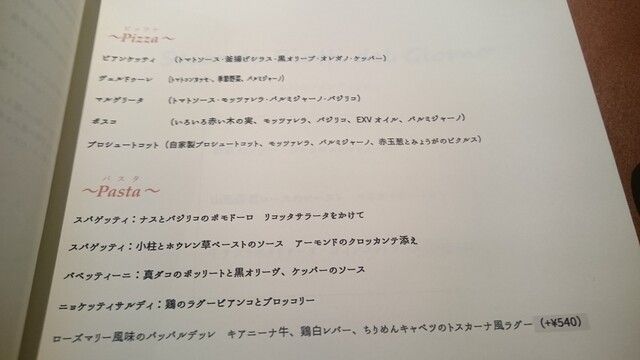 ピッツァ
～Pizza～
ビアンケッティ （トマトソース・釜揚げシラス・黒オリーブ・オレガノ・ケッパー）
ヴェルドゥーレ （トマトコンカッセ、季節野菜、パルミジャーノ）
マルゲリータ （トマトソース・モッツァレラ・パルミジャーノ・バジリコ）
ボスコ （いろいろ赤い木の実、モッツァレラ、バジリコ、EXVオイル、パルミジャーノ）
プロシュートコット（自家製プロシュートコット、モッツァレラ、パルミジャーノ、赤玉葱とみょうがのピクルス）
パスタ
～Pasta～
スパゲッティ：ナスとバジリコのポモドーロ リコッタサラータをかけて
スパゲッティ：小柱とホウレン草ペーストのソース アーモンドのクロッカンテ添え
バベッティーニ：真ダコのボッリートと黒オリーヴ、ケッパーのソース
ニョケッティサルディ：鶏のラグービアンコとブロッコリー
ローズマリー風味のパッパルデッレ キアニーナ牛、鶏白レバー、ちりめんキャベツのトスカーナ風ラグー（+¥540）